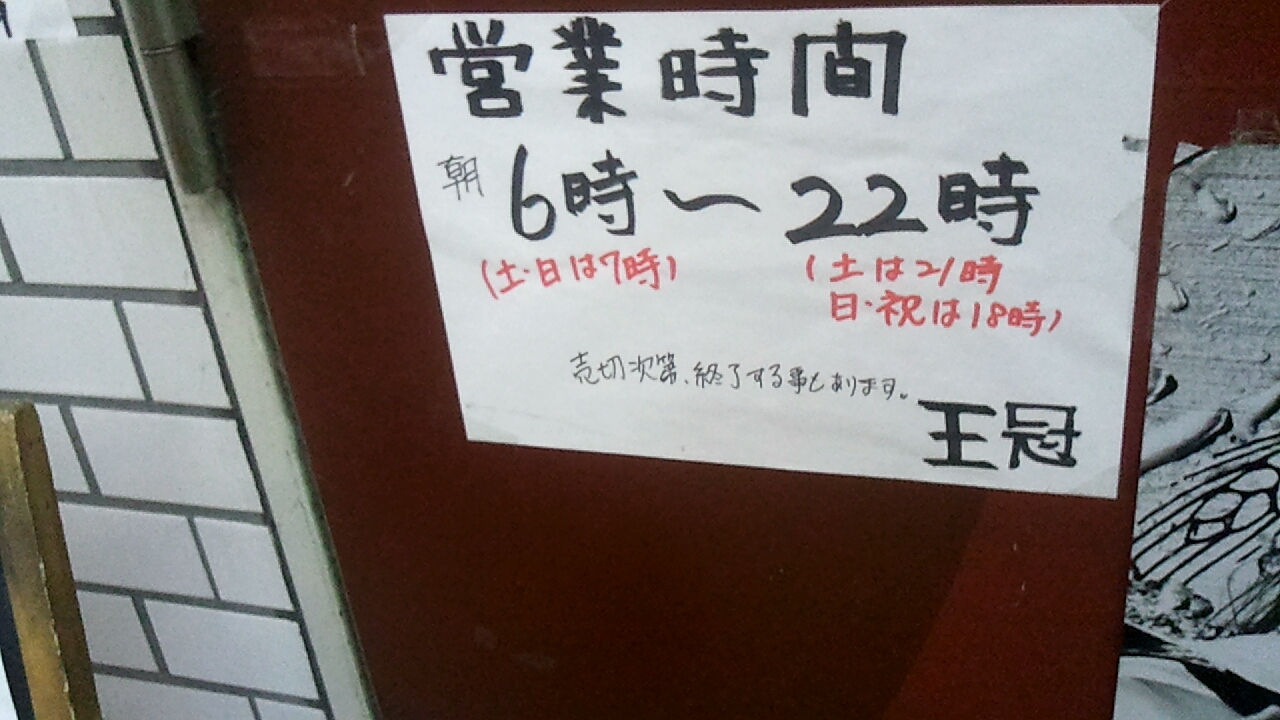 営業時間
朝 6時〜22時
(土・日は7時) (土は21時
日・祝は18時)
売切次第、終了する事もあります。
王冠